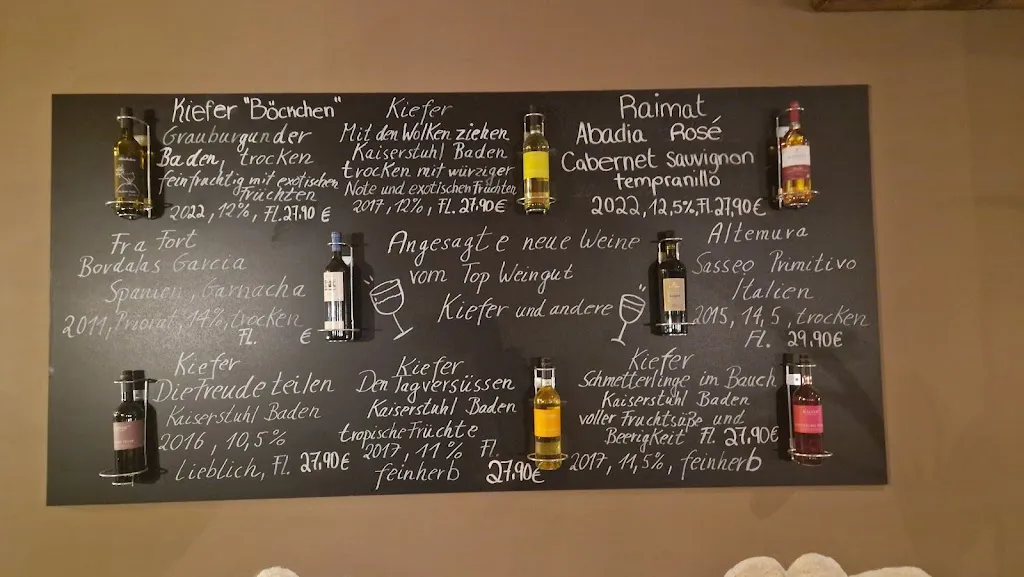 Kiefer "Böcnchen"
Grauburgunder
Baden, trocken
feinfruchtig mit exotischen
Früchten
2022, 12%, Fl. 27,90 €
Kiefer
Mit den Wolken ziehen
Kaiserstuhl Baden
trocken mit würziger
Note und exotischen Früchten
2017, 12%, Fl. 27,90 €
Raimat
Abadia Rosé
Cabernet Sauvignon
tempranillo
2022, 12,5%, Fl. 27,90 €
Fra Fort
Bordalas Garcia
Spanien, Garnacha
2011, Priorat, 14%, trocken
Fl. €
Angesagte neue Weine
vom Top Weingut
Kiefer und andere
Altemura
Sasseo Primitivo
Italien
2015, 14,5, trocken
Fl. 29,90 €
Kiefer
Die Freude teilen
Kaiserstuhl Baden
2016, 10,5%
Lieblich, Fl. 27,90 €
Kiefer
Den Tag versüssen
Kaiserstuhl Baden
tropische Früchte
2017, 11% Fl.
feinherb 27,90 €
Kiefer
Schmetterlinge im Bauch
Kaiserstuhl Baden
voller Fruchtsüße und
Beerigkeit Fl. 27,90 €
2017, 11,5%, feinherb